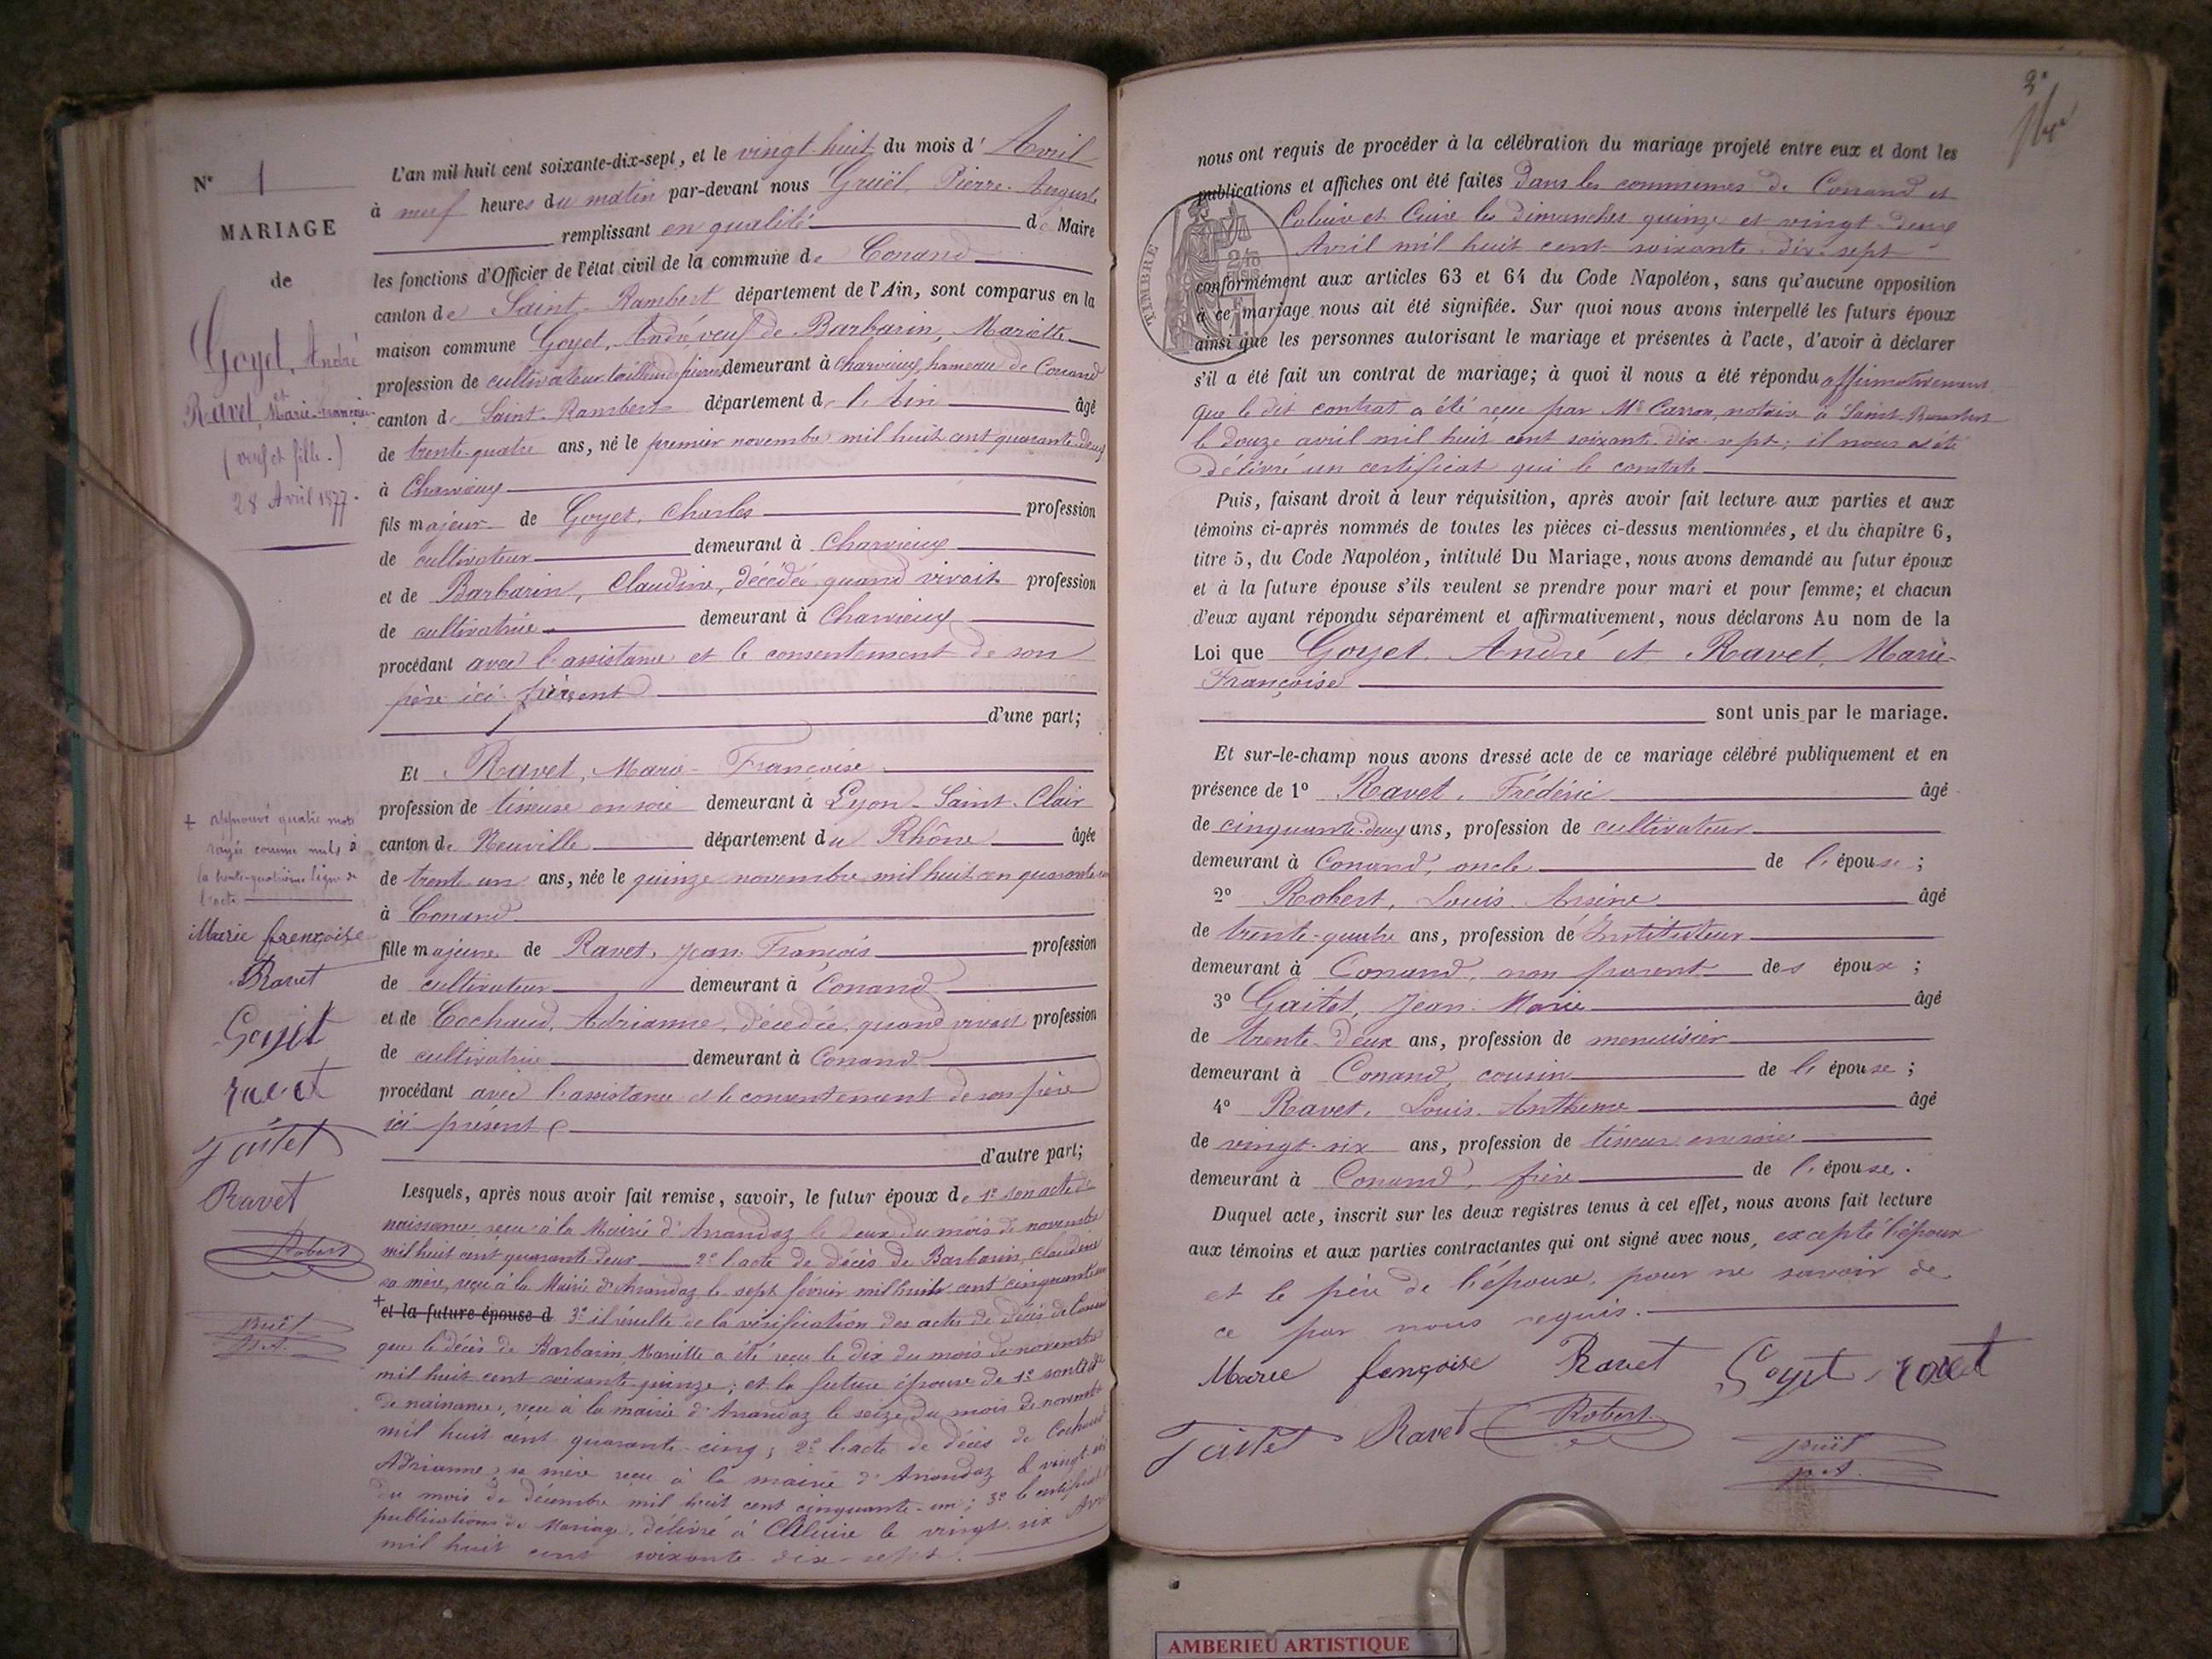 N° 1
MARIAGE
de
Goyet, André
et
Ravet, Marie-Françoise
(veuf et fille.)
28 Avril 1877.
L'an mil huit cent soixante-dix-sept, et le vingt-huit du mois d'Avril
à neuf heures du matin par-devant nous Gruël, Pierre-Auguste
remplissant en qualité de Maire
les fonctions d'Officier de l'état civil de la commune de Conand
canton de Saint-Rambert département de l'Ain, sont comparus en la
maison commune Goyet, André, veuf de Barbarin, Mariette
profession de cultivateur tailleur de pierres demeurant à Charvieux, hameau de Conand
canton de Saint-Rambert département de l'Ain âgé
de trente-quatre ans, né le premier novembre mil huit cent quarante-deux
à Charvieux
fils majeur de Goyet, Charles profession
de cultivateur demeurant à Charvieux
et de Barbarin, Claudine, décédée, quand vivait profession
de cultivatrice demeurant à Charvieux
procédant avec l'assistance et le consentement de son
père ici présent
d'une part;
Et Ravet, Marie-Françoise
profession de tisseuse en soie demeurant à Lyon-Saint-Clair
canton de Neuville département du Rhône âgée
de trente un ans, née le quinze novembre mil huit cen quarante
à Conand
fille majeure de Ravet, Jean-François profession
de cultivateur demeurant à Conand
et de Cochaud, Adrianne, décédée, quand vivait profession
de cultivatrice demeurant à Conand
procédant avec l'assistance et le consentement de son père
ici présent
d'autre part;
Lesquels, après nous avoir fait remise, savoir, le futur époux de 1° son acte de
naissance, reçu à la Mairie d'Arandaz le deux du mois de novembre
mil huit cent quarante-deux 2° l'acte de décès de Barbarin, Claudine
sa mère, reçu à la Mairie d'Arandaz le sept février mil huit cent cinquante
+ et la future épouse d 3° il résulte de la vérification des actes de décès de Conand
que le décès de Barbarin, Mariette a été reçu le dix du mois de novembre
mil huit cent soixante-quinze; et la future épouse de 1° son acte
de naissance, reçu à la mairie d'Arandaz le seize du mois de novembre
mil huit cent quarante-cinq; 2° l'acte de décès de Cochaud
Adrianne, sa mère reçu à la mairie d'Arandaz le vingt-six
du mois de décembre mil huit cent cinquante-un; 3° le certificat
publications de Mariage, délivré à Caluire le vingt-six Avril
mil huit cent soixante-dix-sept.
+ approuvé quatre mots
rayés comme nuls à
la trente-quatrième ligne de
l'acte
Marie françoise
Ravet
Goyet
ravet
Gaitet
Ravet
Robert
Gruël
P.A.
2e
nous ont requis de procéder à la célébration du mariage projeté entre eux et dont les
publications et affiches ont été faites dans les communes de Conand et
Caluire et Cuire les dimanches quinze et vingt-deux
Avril mil huit cent soixante-dix-sept
TIMBRE
conformément aux articles 63 et 64 du Code Napoléon, sans qu'aucune opposition
à ce mariage nous ait été signifiée. Sur quoi nous avons interpellé les futurs époux
ainsi que les personnes autorisant le mariage et présentes à l'acte, d'avoir à déclarer
s'il a été fait un contrat de mariage; à quoi il nous a été répondu affirmativement
que le dit contrat a été reçu par Me Carron, notaire à Saint-Rambert
le douze avril mil huit cent soixante-dix-sept; il nous a été
délivré un certificat qui le constate
Puis, faisant droit à leur réquisition, après avoir fait lecture aux parties et aux
témoins ci-après nommés de toutes les pièces ci-dessus mentionnées, et du chapitre 6,
titre 5, du Code Napoléon, intitulé Du Mariage, nous avons demandé au futur époux
et à la future épouse s'ils veulent se prendre pour mari et pour femme; et chacun
d'eux ayant répondu séparément et affirmativement, nous déclarons Au nom de la
Loi que Goyet, André et Ravet, Marie-
Françoise
sont unis par le mariage.
Et sur-le-champ nous avons dressé acte de ce mariage célébré publiquement et en
présence de 1° Ravet, Frédéric âgé
de cinquante-deux ans, profession de cultivateur
demeurant à Conand, oncle de l'épouse;
2° Robert, Louis-Arsène âgé
de trente-quatre ans, profession de Instituteur
demeurant à Conand, non parent des époux;
3° Gaitet, Jean-Marie âgé
de trente-deux ans, profession de menuisier
demeurant à Conand, cousin de l'épouse;
4° Ravet, Louis-Anthème âgé
de vingt-six ans, profession de tisseur en soie
demeurant à Conand, frère de l'épouse.
Duquel acte, inscrit sur les deux registres tenus à cet effet, nous avons fait lecture
aux témoins et aux parties contractantes qui ont signé avec nous, excepté l'époux
et le père de l'époux, pour ne savoir de
ce par nous requis.
Marie fençoise Ravet Goyet ravet
Gaitet Ravet Robert
Gruël
P.A.
AMBERIEU ARTISTIQUE